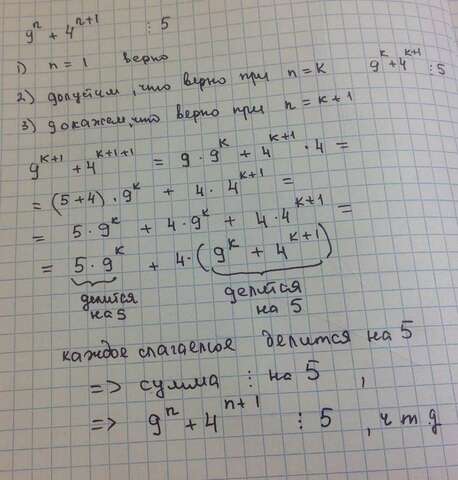 9^n + 4^{n+1} ⋮ 5
1) n = 1 верно
2) допустим, что верно при n = k 9^k + 4^{k+1} ⋮ 5
3) докажем, что верно при n = k + 1
9^{k+1} + 4^{k+1+1} = 9 · 9^k + 4^{k+1} · 4 =
= (5+4) · 9^k + 4 · 4^{k+1} =
= 5 · 9^k + 4 · 9^k + 4 · 4^{k+1} =
= 5 · 9^k + 4 · (9^k + 4^{k+1})
делится на 5
делится на 5
каждое слагаемое делится на 5
=> сумма ⋮ на 5 ,
=> 9^n + 4^{n+1} ⋮ 5 , ч т д